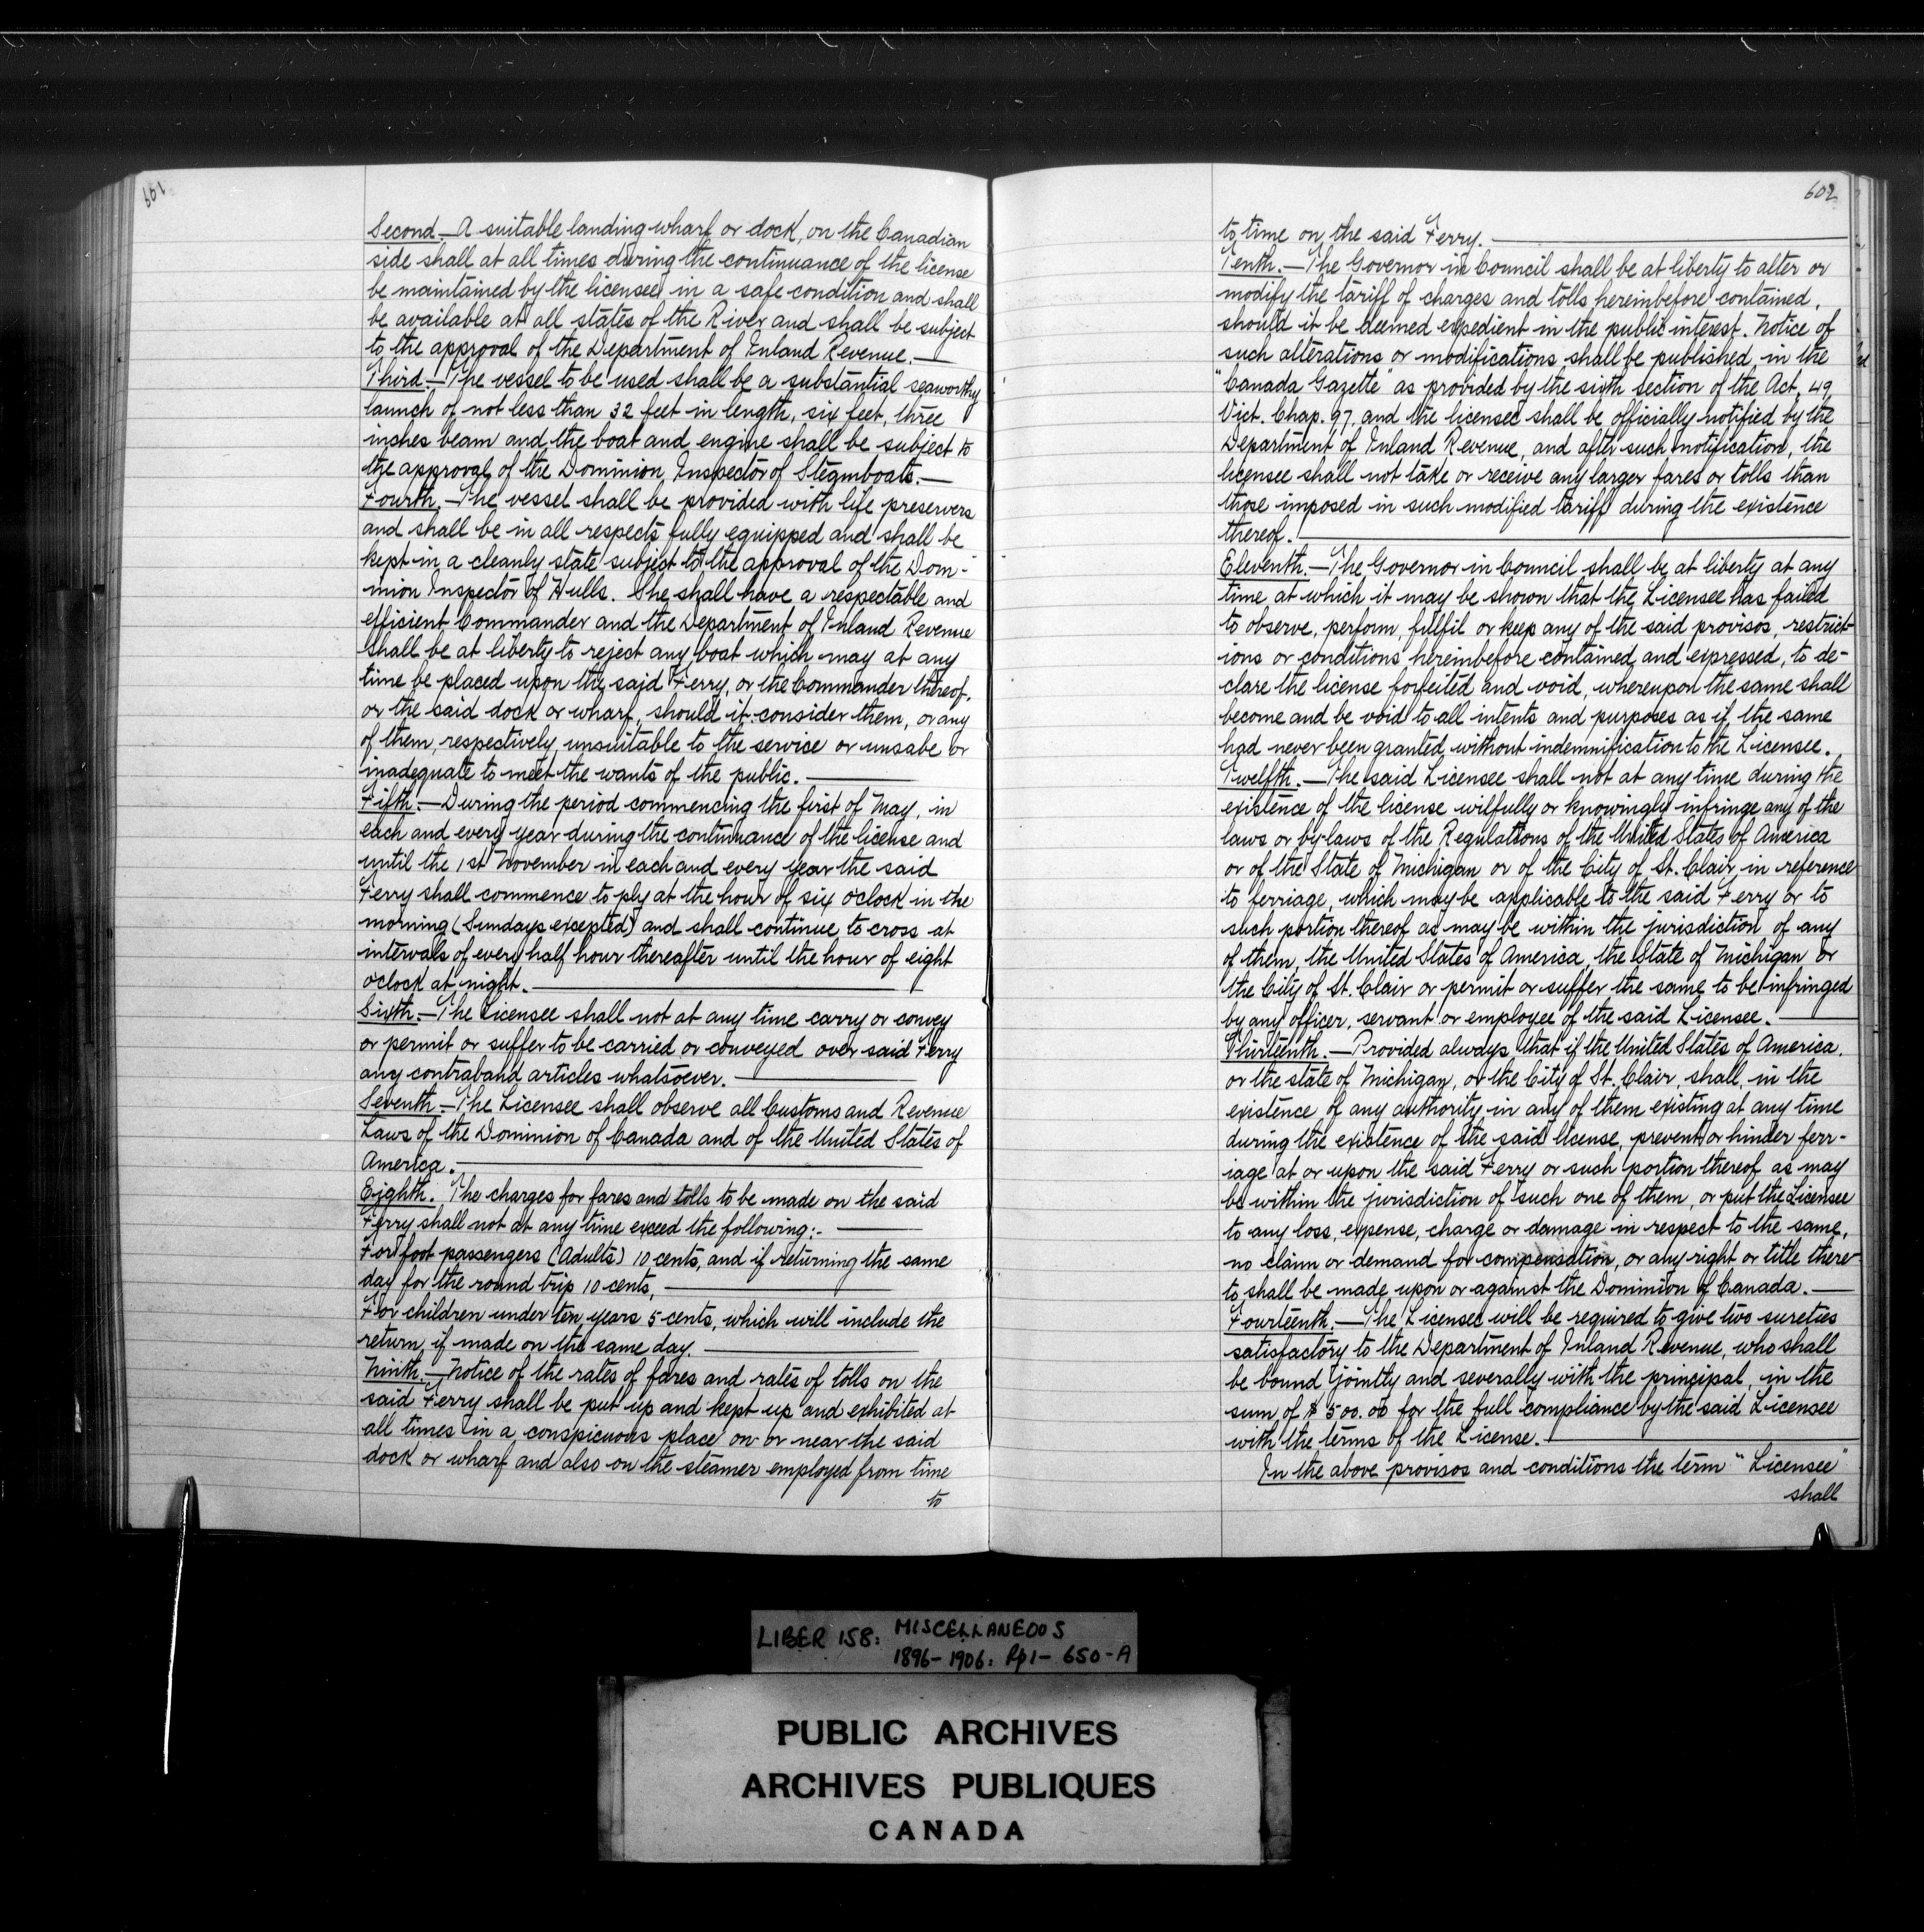 601
Second.—A suitable landing wharf or dock, on the Canadian
side shall at all times during the continuance of the license
be maintained by the licensee in a safe condition and shall
be available at all states of the River and shall be subject
to the approval of the Department of Inland Revenue.—
Third.—The vessel to be used shall be a substantial seaworthy
launch of not less than 32 feet in length, six feet, three
inches beam and the boat and engine shall be subject to
the approval of the Dominion Inspector of Steamboats.—
Fourth.—The vessel shall be provided with life preservers
and shall be in all respects fully equipped and shall be
kept in a cleanly state subject to the approval of the Dom-
inion Inspector of Hulls. She shall have a respectable and
efficient Commander and the Department of Inland Revenue
shall be at liberty to reject any boat which may at any
time be placed upon the said Ferry, or the Commander thereof,
or the said dock or wharf, should it consider them, or any
of them, respectively, unsuitable to the service or unsafe or
inadequate to meet the wants of the public.—
Fifth.—During the period commencing the first of May, in
each and every year during the continuance of the license and
until the 1st November in each and every year the said
Ferry shall commence to ply at the hour of six o'clock in the
morning (Sundays excepted) and shall continue to cross at
intervals of every half hour thereafter until the hour of eight
o'clock at night.—
Sixth.—The Licensee shall not at any time carry or convey
or permit or suffer to be carried or conveyed over said Ferry
any contraband articles whatsoever.—
Seventh.—The Licensee shall observe all Customs and Revenue
Laws of the Dominion of Canada and of the United States of
America.—
Eighth. The charges for fares and tolls to be made on the said
Ferry shall not at any time exceed the following:-—
For foot passengers (Adults) 10 cents, and if returning the same
day for the round trip 10 cents,—
For children under ten years 5 cents, which will include the
return, if made on the same day.—
Ninth.—Notice of the rates of fares and rates of tolls on the
said Ferry shall be put up and kept up and exhibited at
all times in a conspicuous place on or near the said
dock or wharf and also on the steamer employed from time
to
602
to time on the said Ferry.—
Tenth.—The Governor in Council shall be at liberty to alter or
modify the tariff of charges and tolls hereinbefore contained,
should it be deemed expedient in the public interest. Notice of
such alterations or modifications shall be published in the
"Canada Gazette" as provided by the sixth section of the Act, 49,
Vict. Chap. 97, and the licensee shall be officially notified by the
Department of Inland Revenue, and after such notification, the
licensee shall not take or receive any larger fares or tolls than
those imposed in such modified tariff during the existence
thereof.—
Eleventh.—The Governor in Council shall be at liberty at any
time at which it may be shown that the Licensee has failed
to observe, perform, fulfil or keep any of the said provisos, restrict-
ions or conditions hereinbefore contained and expressed, to de-
clare the license forfeited and void, whereupon the same shall
become and be void to all intents and purposes as if the same
had never been granted, without indemnification to the Licensee.
Twelfth.—The said Licensee shall not at any time during the
existence of the license wilfully or knowingly infringe any of the
laws or by-laws of the Regulations of the United States of America
or of the State of Michigan or of the City of St. Clair, in reference
to ferriage, which may be applicable to the said Ferry or to
such portion thereof as may be within the jurisdiction of any
of them, the United States of America, the State of Michigan or
the City of St. Clair or permit or suffer the same to be infringed
by any officer, servant or employee of the said Licensee.—
Thirteenth.—Provided always that if the United States of America,
or the state of Michigan, or the City of St. Clair, shall, in the
existence of any authority in any of them existing at any time
during the existence of the said license, prevent or hinder ferr-
iage at or upon the said Ferry or such portion thereof as may
be within the jurisdiction of such one of them, or put the Licensee
to any loss, expense, charge or damage in respect to the same,
no claim or demand for compensation, or any right or title there-
to shall be made upon or against the Dominion of Canada.—
Fourteenth.—The Licensee will be required to give two sureties
satisfactory to the Department of Inland Revenue, who shall
be bound jointly and severally with the principal, in the
sum of $500.00 for the full compliance by the said Licensee
with the terms of the License.—
In the above provisos and conditions the term "Licensee"
shall
LIBER 158: MISCELLANEOUS
1896-1906: Pp 1-650-A
PUBLIC ARCHIVES
ARCHIVES PUBLIQUES
CANADA